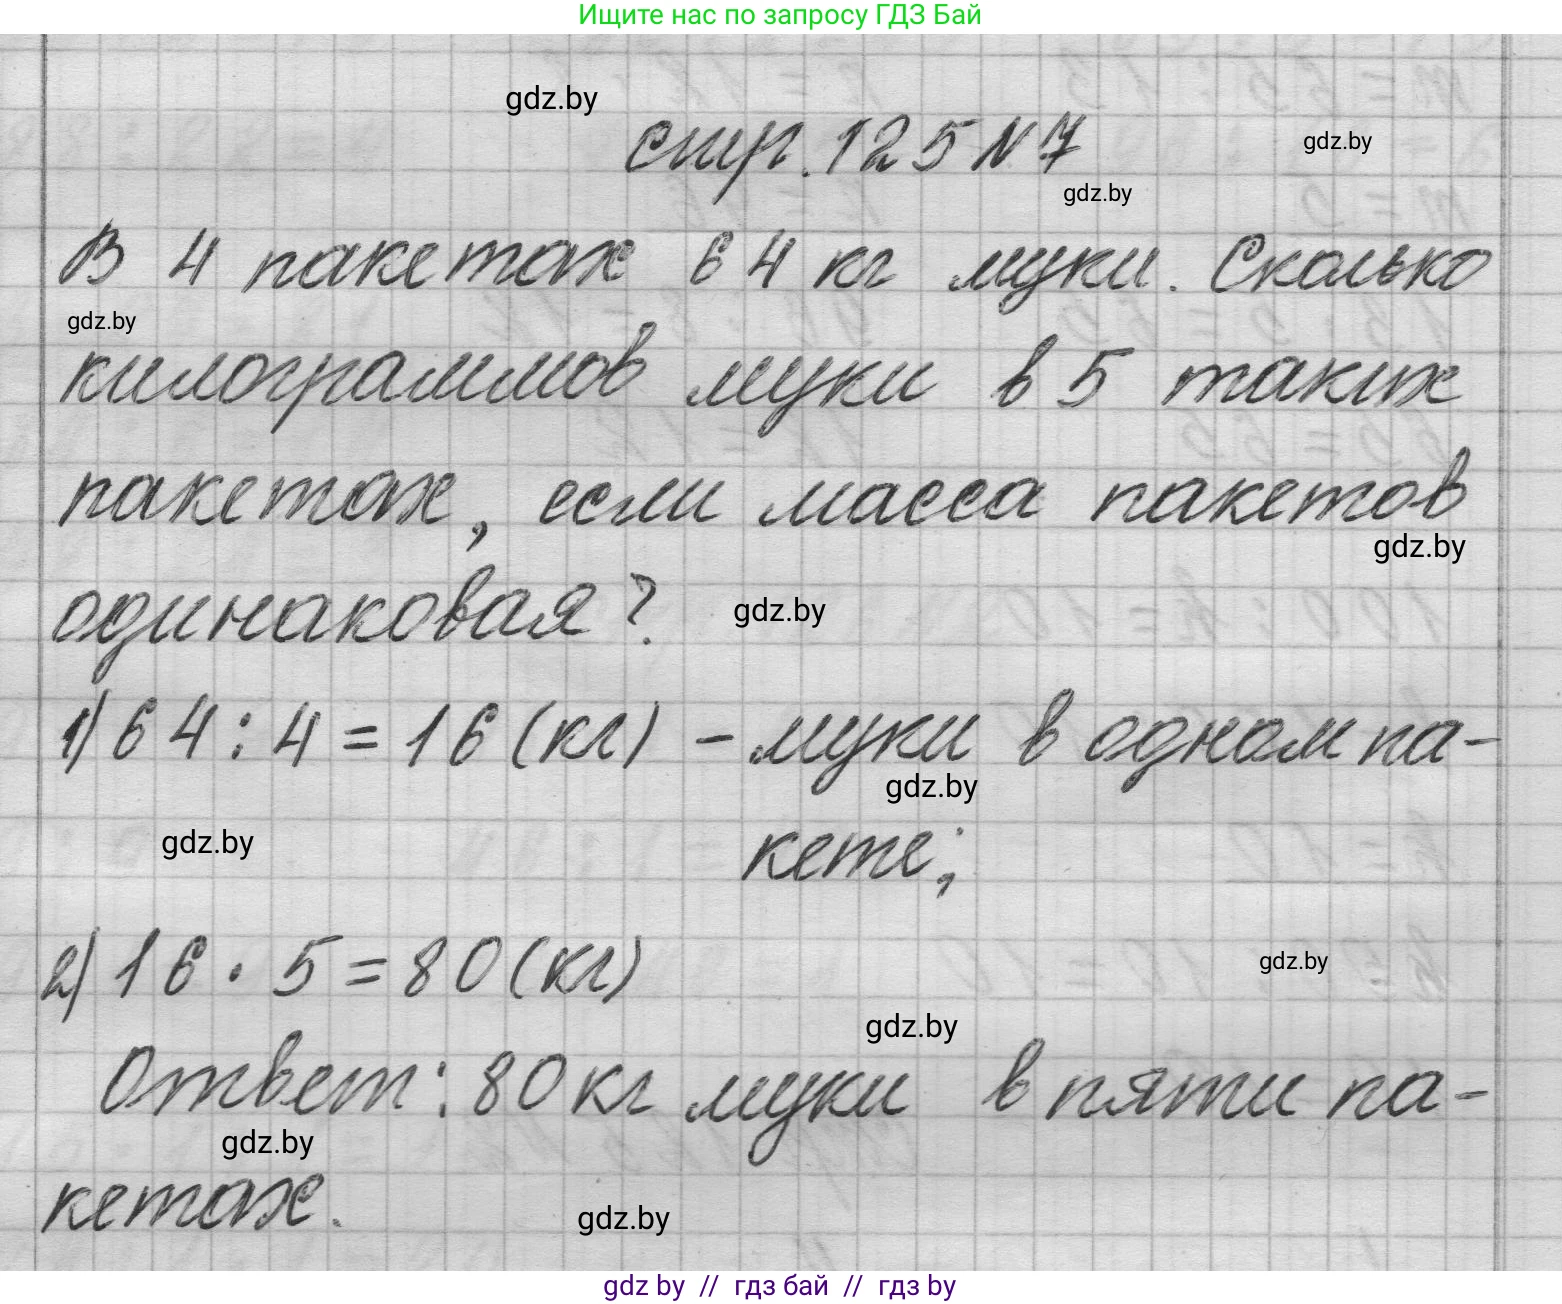 Ищите нас по запросу ГДЗ Бай
gdz.by
стр. 125 N 7
gdz.by
gdz.by
В 4 пакетах 64 кг муки. Сколько
gdz.by
килограммов муки в 5 таких
пакетах, если масса пакетов
gdz.by
одинаковая?
gdz.by
1) 64 : 4 = 16 (кг) – муки в одном па-
gdz.by
gdz.by
кете;
2) 16 · 5 = 80 (кг)
gdz.by
gdz.by
Ответ: 80 кг муки в пяти па-
gdz.by
кетах.
gdz.by
gdz by // гдз бай // гдз by